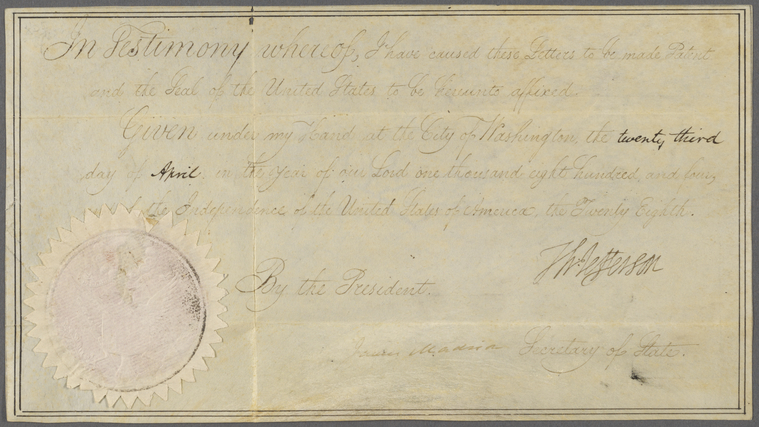 In Testimony whereof, I have caused these Letters to be made Patent
and the Seal of the United States to be hereunto affixed.
Given under my Hand at the City of Washington, the twenty third
day of April, in the Year of our Lord one thousand eight hundred and four,
of the Independence of the United States of America, the Twenty Eighth.
Th: Jefferson
By the President.
James Madison Secretary of State.